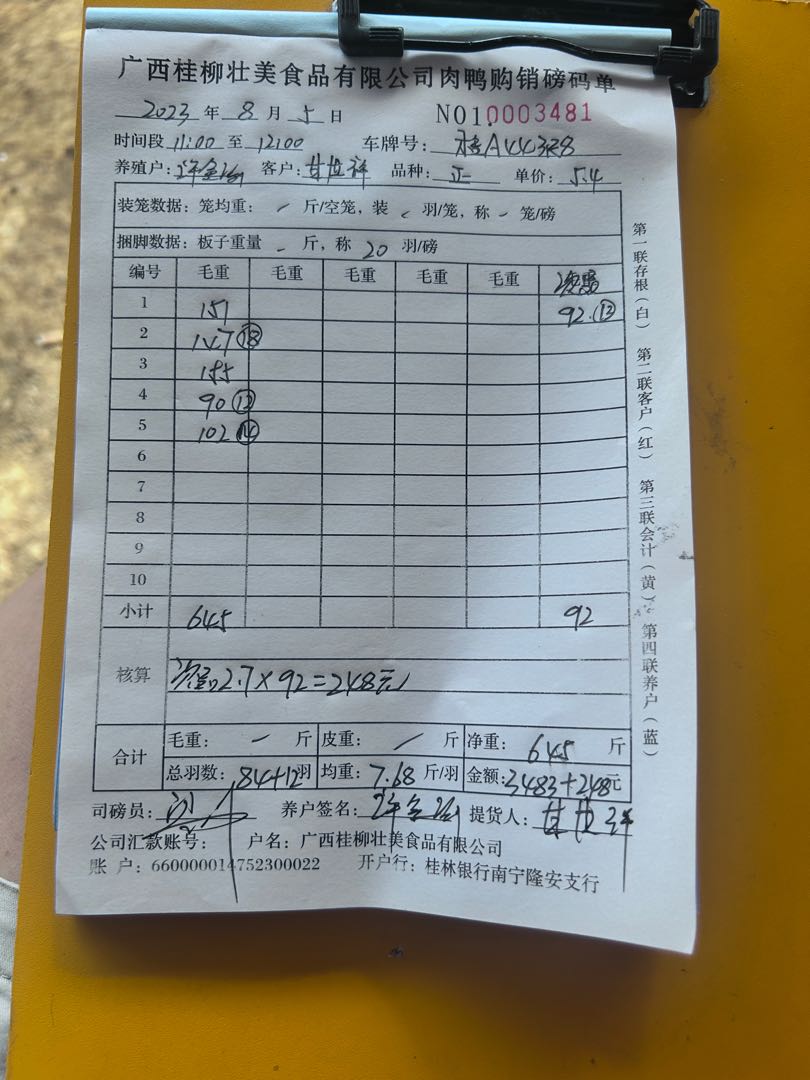 广西桂柳壮美食品有限公司肉鸭购销磅码单
2023 年 8 月 5 日 NO10003481
时间段 11:00 至 12:00 车牌号:
养殖户: 客户: 品种: 正 单价: 5.4
装笼数据: 笼均重: 斤/空笼, 装 羽/笼, 称 笼/磅
捆脚数据: 板子重量 斤, 称 20 羽/磅
编号 毛重 毛重 毛重 毛重 毛重
1 151 92. ⑫
2 147 ⑱
3 155
4 90 ⑫
5 102 ⑭
6
7
8
9
10
小计 645 92
核算 2.7×92=248元
合计 毛重: 斤 皮重: 斤 净重: 645 斤
总羽数: 84+12 羽 均重: 7.68 斤/羽 金额: 3483+248元
司磅员: 养户签名: 提货人:
公司汇款账号: 户名: 广西桂柳壮美食品有限公司
账 户: 660000014752300022 开户行: 桂林银行南宁隆安支行
第一联存根(白) 第二联客户(红) 第三联会计(黄) 第四联养户(蓝)